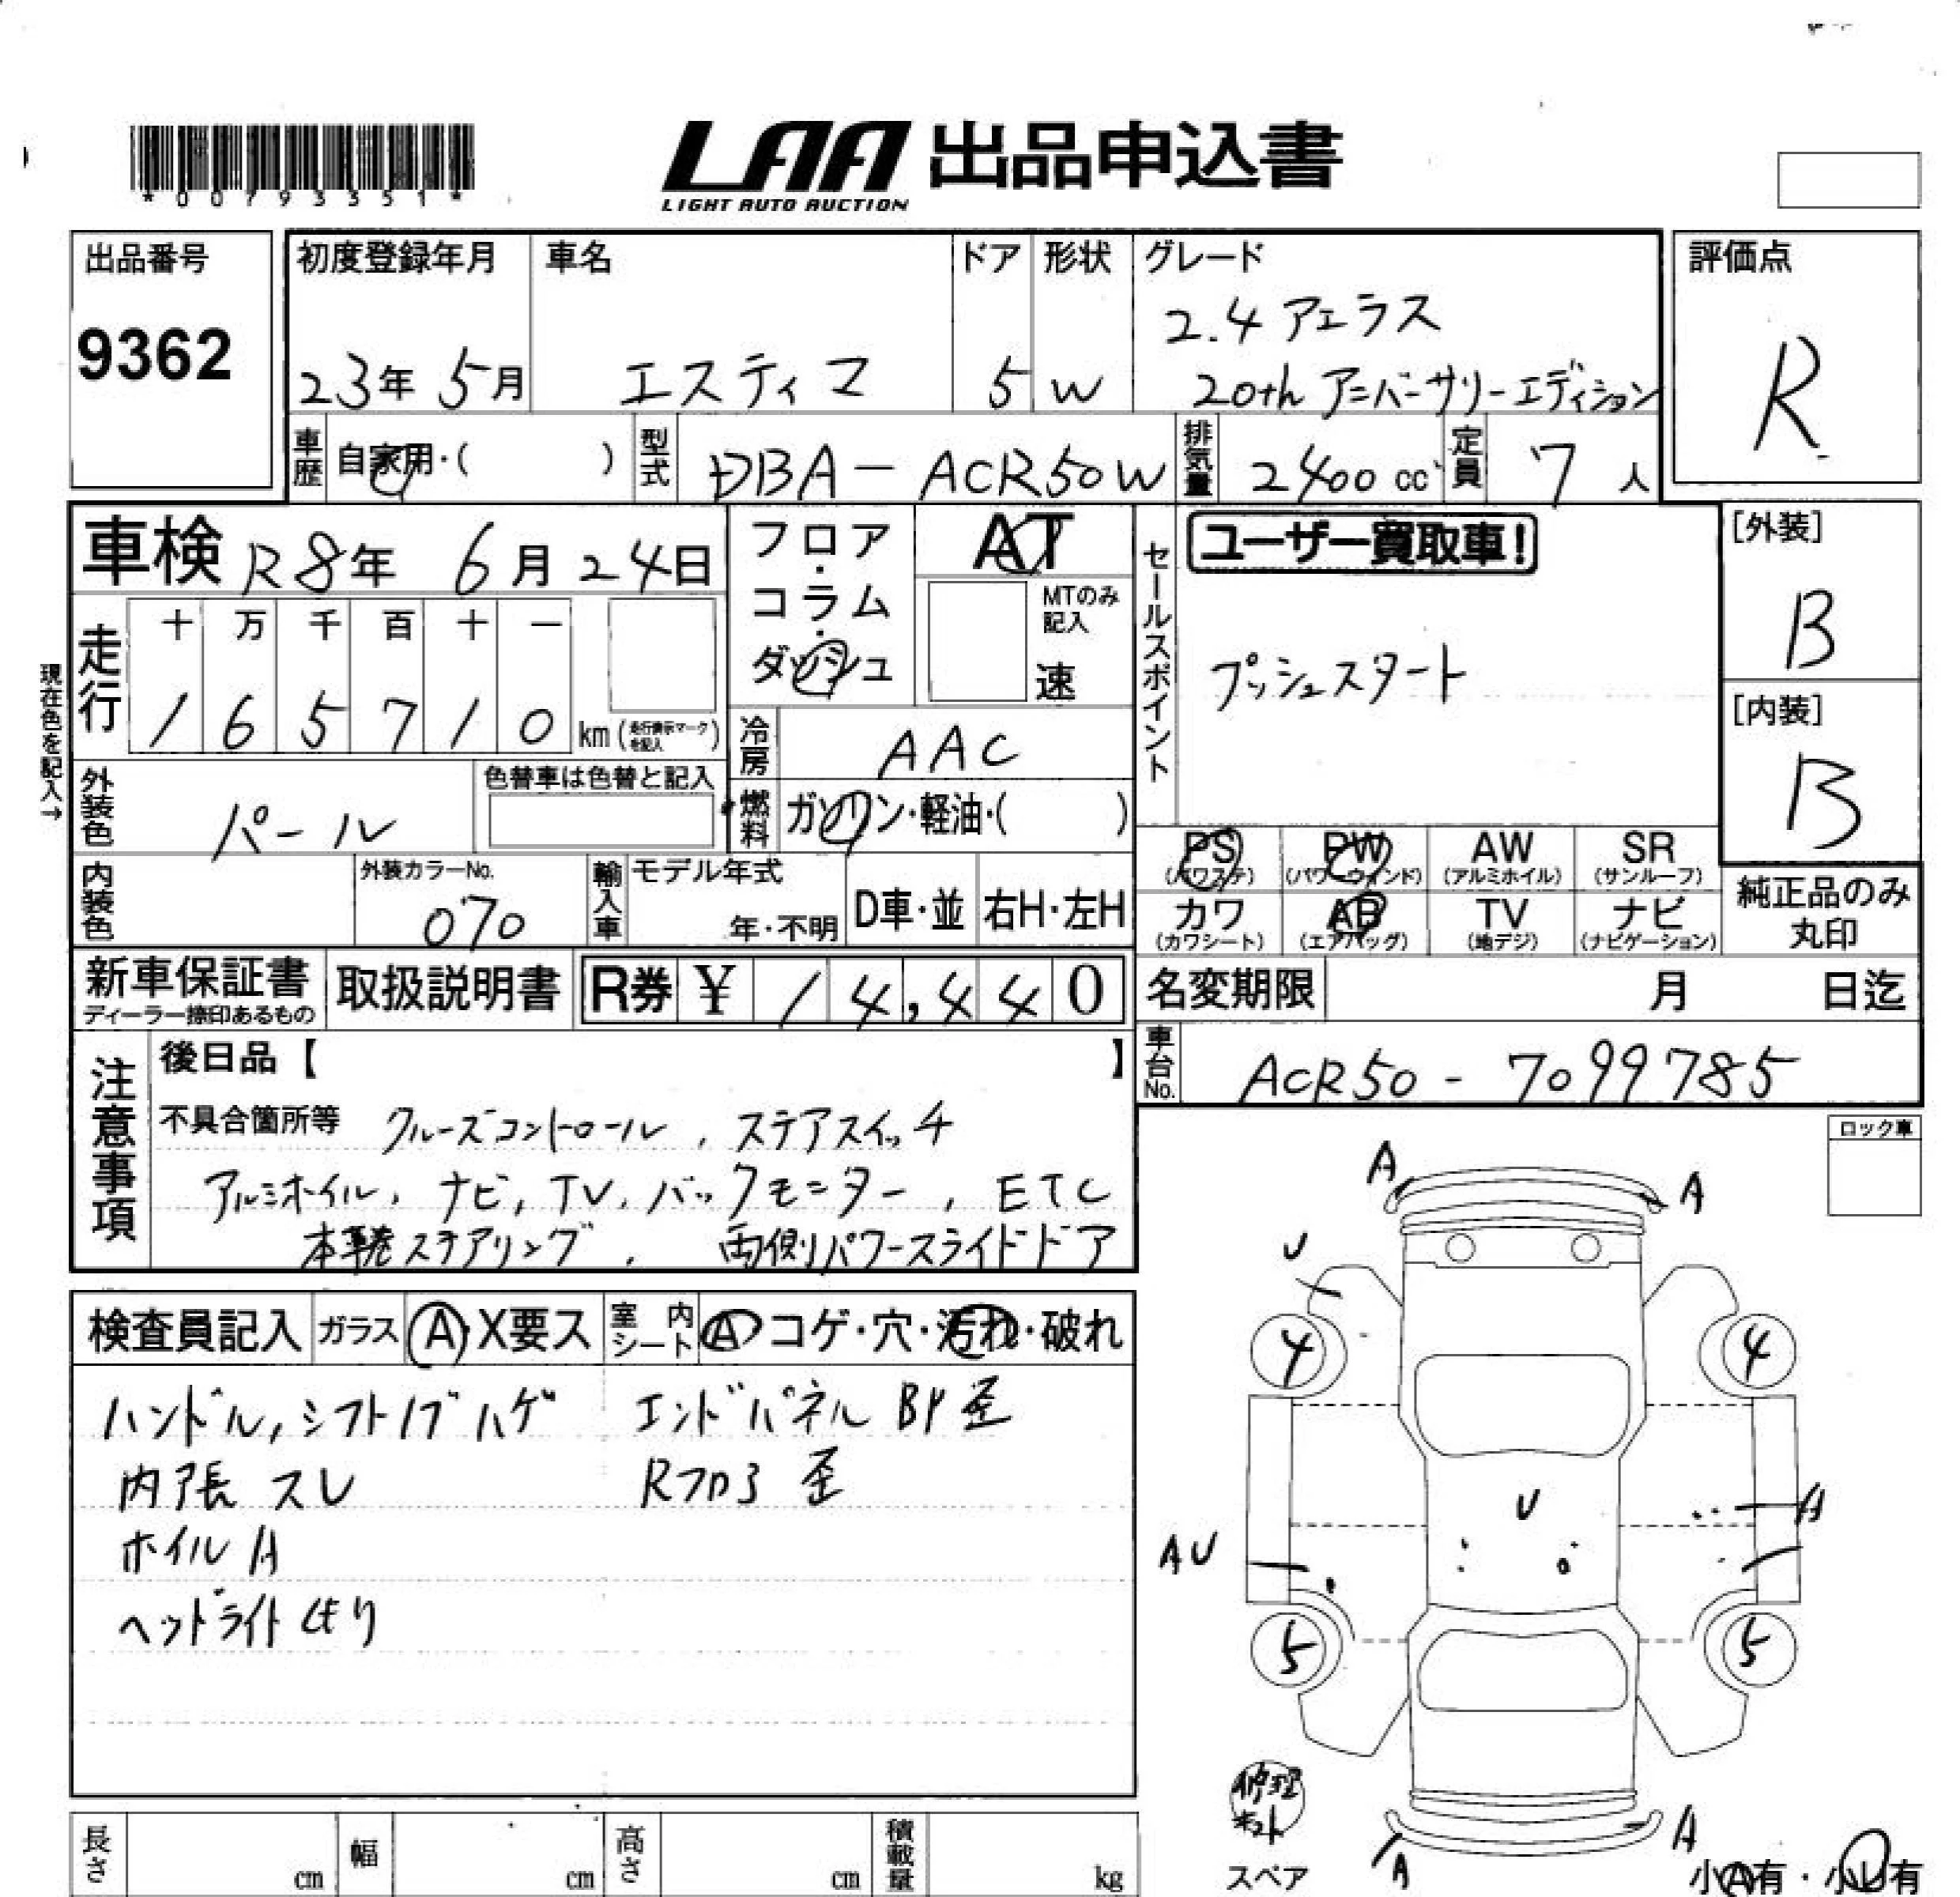 *00793351*
LAA 出品申込書
LIGHT AUTO AUCTION
出品番号
9362
初度登録年月
23年 5月
車名
エスティマ
ドア
5
形状
W
グレード
2.4 アエラス
20th アニバーサリーエディション
評価点
R
車歴 自家用・( )
型式 DBA-ACR50W
排気量 2400 cc
定員 7 人
車検 R8年 6月 24日
フロア・コラム・ダッシュ
AT
MTのみ記入
速
セールスポイント
ユーザー買取車!
プッシュスタート
[外装]
B
[内装]
B
現在色を記入→
走行
十 万 千 百 十 一
1 6 5 7 1 0 km (走行表示マークを記入)
冷房 AAC
外装色 パール
色替車は色替と記入
燃料 ガソリン・軽油・( )
内装色
外装カラーNo.
070
輸入車
モデル年式
年・不明
D車・並
右H・左H
PS (パワステ)
PW (パワーウインド)
AW (アルミホイル)
SR (サンルーフ)
カワ (カワシート)
AB (エアバッグ)
TV (地デジ)
ナビ (ナビゲーション)
純正品のみ丸印
新車保証書
ディーラー捺印あるもの
取扱説明書
R券 ¥ 14,440
名変期限 月 日迄
車台No. ACR50-7099785
注意事項
後日品【 】
不具合箇所等 クルーズコントロール, ステアスイッチ
アルミホイル, ナビ, TV, バックモニター, ETC
本革巻ステアリング, 両側パワースライドドア
ロック車
検査員記入
ガラス A・X要ス
室内シート A・コゲ・穴・汚れ・破れ
ハンドル, シフトノブ ハゲ
エンドパネル BP 歪
内張 スレ
Rフロア 歪
ホイル A
ヘッドライト くもり
A
A
U
4
4
U
A
AU
5
5
修理キット
スペア
A
A
小A有・小U有
長さ cm
幅 cm
高さ cm
積載量 kg